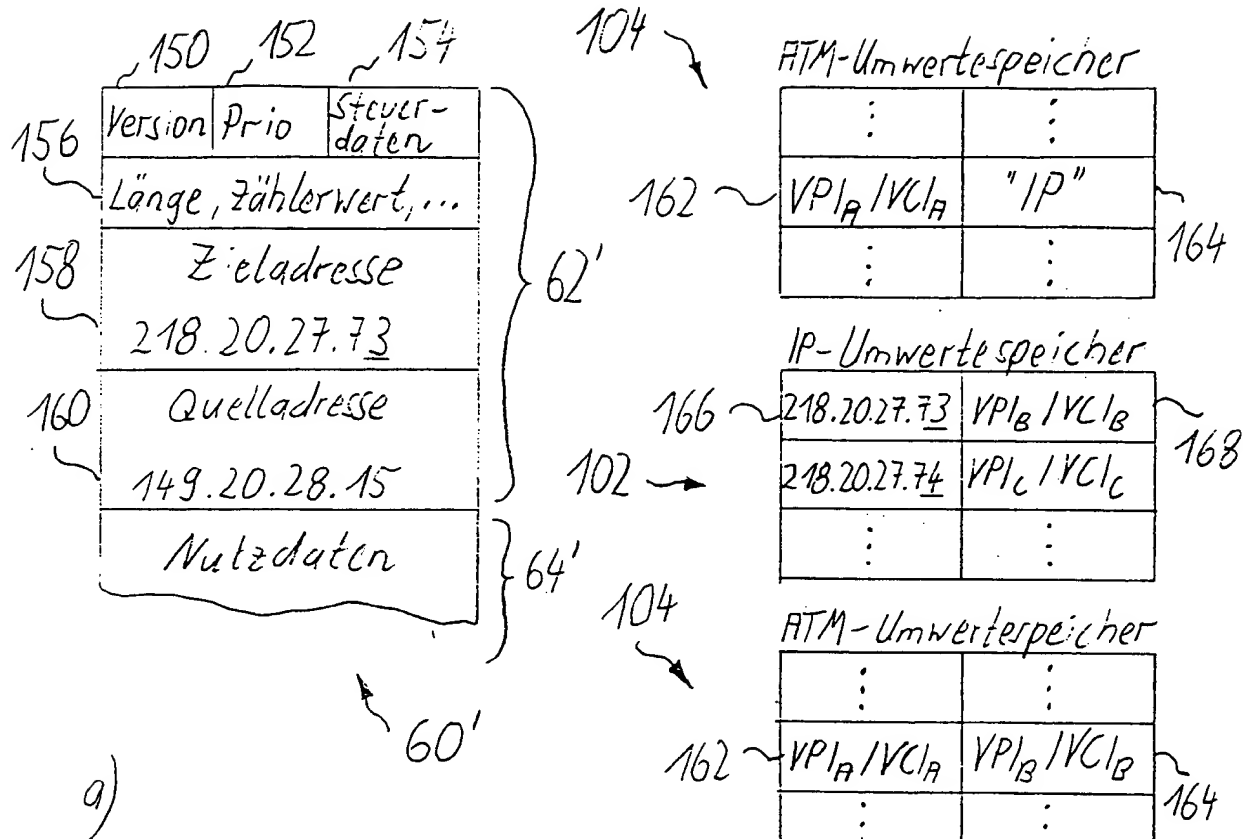 150 152 154
Version Prio Steuer-
daten
156
Länge, Zählerwert, ...
158
Zieladresse
218.20.27.73
62'
160
Quelladresse
149.20.28.15
Nutzdaten
64'
60'
a)
104
ATM-Umwertespeicher
162 VPI_A/VCI_A "IP" 164
IP-Umwertespeicher
166 218.20.27.73 VPI_B/VCI_B 168
102 218.20.27.74 VPI_C/VCI_C
104
ATM-Umwertespeicher
162 VPI_A/VCI_A VPI_B/VCI_B 164